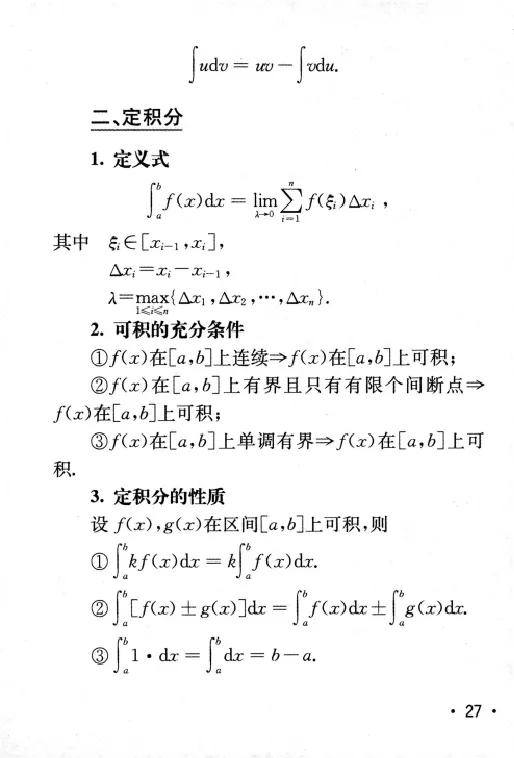 ∫udv = uv − ∫vdu.
二、定积分
1. 定义式
∫ₐᵇ f(x)dx = lim_{λ→0} ∑_{i=1}^{n} f(ξᵢ)Δxᵢ ,
其中 ξᵢ∈[xᵢ₋₁,xᵢ],
Δxᵢ=xᵢ−xᵢ₋₁,
λ=max_{1≤i≤n}{Δx₁,Δx₂,⋯,Δxₙ}.
2. 可积的充分条件
①f(x)在[a,b]上连续⇒f(x)在[a,b]上可积;
②f(x)在[a,b]上有界且只有有限个间断点⇒
f(x)在[a,b]上可积;
③f(x)在[a,b]上单调有界⇒f(x)在[a,b]上可
积.
3. 定积分的性质
设 f(x),g(x)在区间[a,b]上可积,则
① ∫ₐᵇ kf(x)dx = k∫ₐᵇ f(x)dx.
② ∫ₐᵇ [f(x)±g(x)]dx = ∫ₐᵇ f(x)dx ± ∫ₐᵇ g(x)dx.
③ ∫ₐᵇ 1·dx = ∫ₐᵇ dx = b−a.
· 27 ·